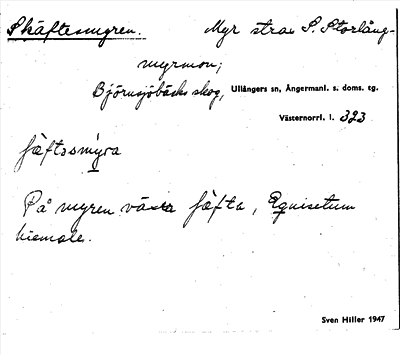 Skäftesmyren. Myr strax S. Storlång-
myrmon;
Björnsjöbäcks skog, Ullångers sn, Ångermanl. s. doms. tg.
Västernorrl. l. 323
fæftəsmýra
På myren växte fæfta, Equisetum
hiemale.
Sven Hiller 1947